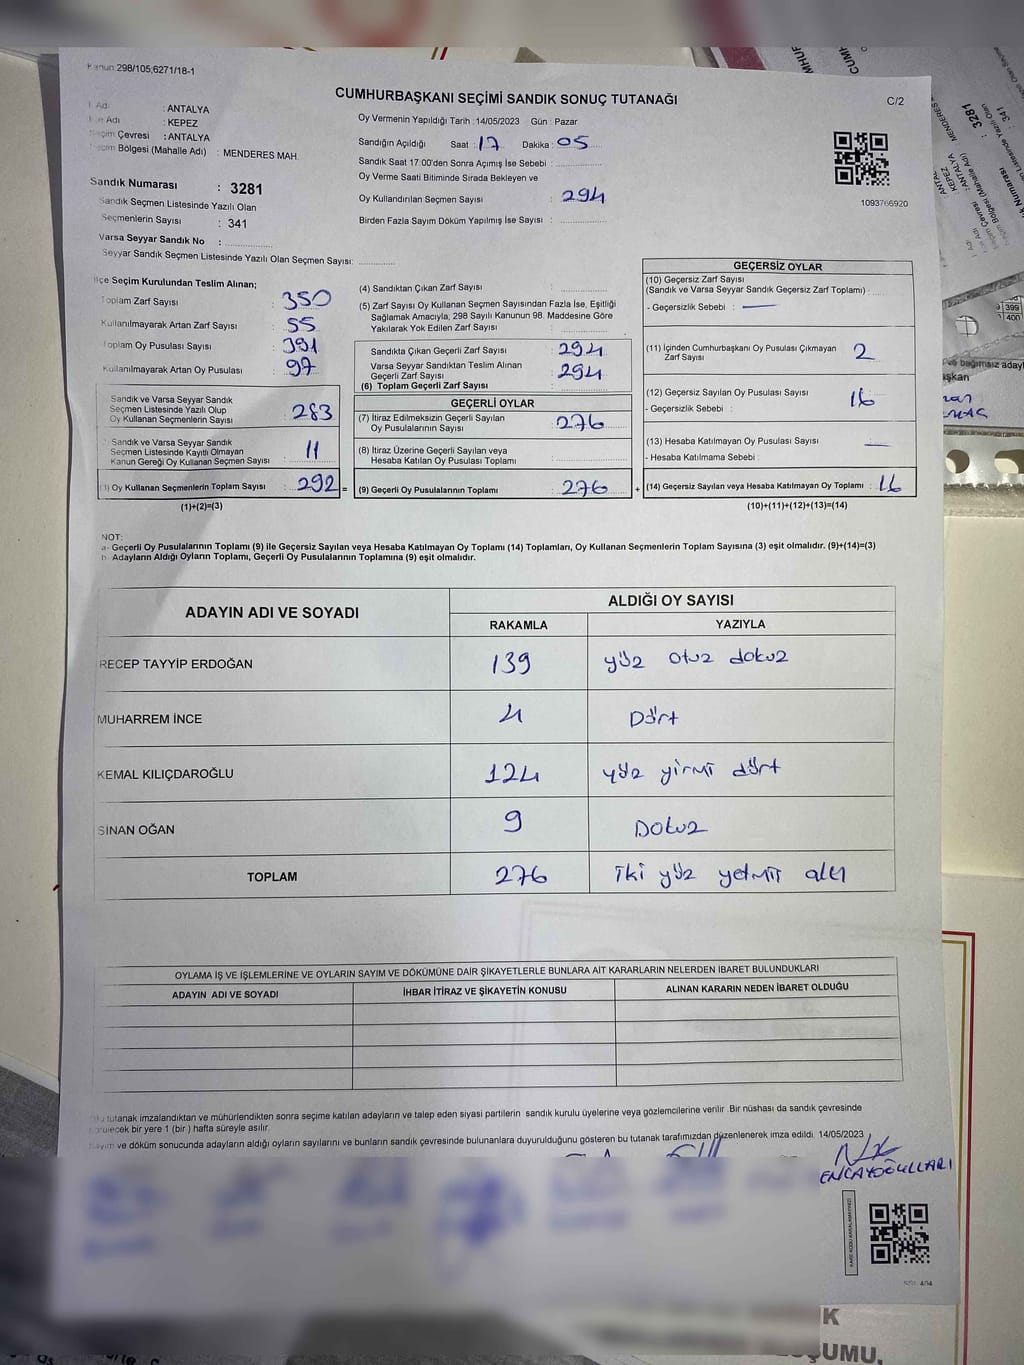 Kanun:298/105;6271/18-1
CUMHURBAŞKANI SEÇİMİ SANDIK SONUÇ TUTANAĞI
C/2
Adı : ANTALYA
Adı : KEPEZ
Seçim Çevresi : ANTALYA
Seçim Bölgesi (Mahalle Adı) : MENDERES MAH.
Sandık Numarası : 3281
Sandık Seçmen Listesinde Yazılı Olan
Seçmenlerin Sayısı : 341
Varsa Seyyar Sandık No :
Seyyar Sandık Seçmen Listesinde Yazılı Olan Seçmen Sayısı:
Oy Vermenin Yapıldığı Tarih : 14/05/2023 Gün : Pazar
Sandığın Açıldığı Saat : 17 Dakika : 05
Sandık Saat 17:00'den Sonra Açımış İse Sebebi :
Oy Verme Saati Bitiminde Sırada Bekleyen ve
Oy Kullandırılan Seçmen Sayısı : 294
Birden Fazla Sayım Döküm Yapılmış İse Sayısı :
1093766920
İlçe Seçim Kurulundan Teslim Alınan;
Toplam Zarf Sayısı : 350
Kullanılmayarak Artan Zarf Sayısı : 55
Toplam Oy Pusulası Sayısı : 391
Kullanılmayarak Artan Oy Pusulası : 97
Sandık ve Varsa Seyyar Sandık
Seçmen Listesinde Yazılı Olup
Oy Kullanan Seçmenlerin Sayısı : 283
Sandık ve Varsa Seyyar Sandık
Seçmen Listesinde Kayıtlı Olmayan
Kanun Gereği Oy Kullanan Seçmen Sayısı : 11
(3) Oy Kullanan Seçmenlerin Toplam Sayısı : 292 =
(1)+(2)=(3)
(4) Sandıktan Çıkan Zarf Sayısı :
(5) Zarf Sayısı Oy Kullanan Seçmen Sayısından Fazla İse, Eşitliği
Sağlamak Amacıyla, 298 Sayılı Kanunun 98. Maddesine Göre
Yakılarak Yok Edilen Zarf Sayısı :
Sandıkta Çıkan Geçerli Zarf Sayısı : 294
Varsa Seyyar Sandıktan Teslim Alınan
Geçerli Zarf Sayısı : 294
(6) Toplam Geçerli Zarf Sayısı :
GEÇERLİ OYLAR
(7) İtiraz Edilmeksizin Geçerli Sayılan
Oy Pusulalarının Sayısı : 276
(8) İtiraz Üzerine Geçerli Sayılan veya
Hesaba Katılan Oy Pusulası Toplamı :
(9) Geçerli Oy Pusulalarının Toplamı : 276 +
GEÇERSİZ OYLAR
(10) Geçersiz Zarf Sayısı
(Sandık ve Varsa Seyyar Sandık Geçersiz Zarf Toplamı) :
- Geçersizlik Sebebi : —
(11) İçinden Cumhurbaşkanı Oy Pusulası Çıkmayan
Zarf Sayısı : 2
(12) Geçersiz Sayılan Oy Pusulası Sayısı : 16
- Geçersizlik Sebebi :
(13) Hesaba Katılmayan Oy Pusulası Sayısı : —
- Hesaba Katılmama Sebebi :
(14) Geçersiz Sayılan veya Hesaba Katılmayan Oy Toplamı : 16
(10)+(11)+(12)+(13)=(14)
NOT:
a- Geçerli Oy Pusulalarının Toplamı (9) ile Geçersiz Sayılan veya Hesaba Katılmayan Oy Toplamı (14) Toplamları, Oy Kullanan Seçmenlerin Toplam Sayısına (3) eşit olmalıdır. (9)+(14)=(3)
b- Adayların Aldığı Oyların Toplamı, Geçerli Oy Pusulalarının Toplamına (9) eşit olmalıdır.
ADAYIN ADI VE SOYADI ALDIĞI OY SAYISI
RAKAMLA YAZIYLA
RECEP TAYYİP ERDOĞAN 139 yüz otuz dokuz
MUHARREM İNCE 4 Dört
KEMAL KILIÇDAROĞLU 124 yüz yirmi dört
SİNAN OĞAN 9 Dokuz
TOPLAM 276 iki yüz yetmiş altı
OYLAMA İŞ VE İŞLEMLERİNE VE OYLARIN SAYIM VE DÖKÜMÜNE DAİR ŞİKAYETLERLE BUNLARA AİT KARARLARIN NELERDEN İBARET BULUNDUKLARI
ADAYIN ADI VE SOYADI İHBAR İTİRAZ VE ŞİKAYETİN KONUSU ALINAN KARARIN NEDEN İBARET OLDUĞU
tutanak imzalandıktan ve mühürlendikten sonra seçime katılan adayların ve talep eden siyasi partilerin sandık kurulu üyelerine veya gözlemcilerine verilir. Bir nüshası da sandık çevresinde
bir yere 1 (bir ) hafta süreyle asılır.
ve döküm sonucunda adayların aldığı oyların sayılarını ve bunların sandık çevresinde bulunanlara duyurulduğunu gösteren bu tutanak tarafımızdan düzenlenerek imza edildi. 14/05/2023
ENCAYOĞULLARI
K
UMU,